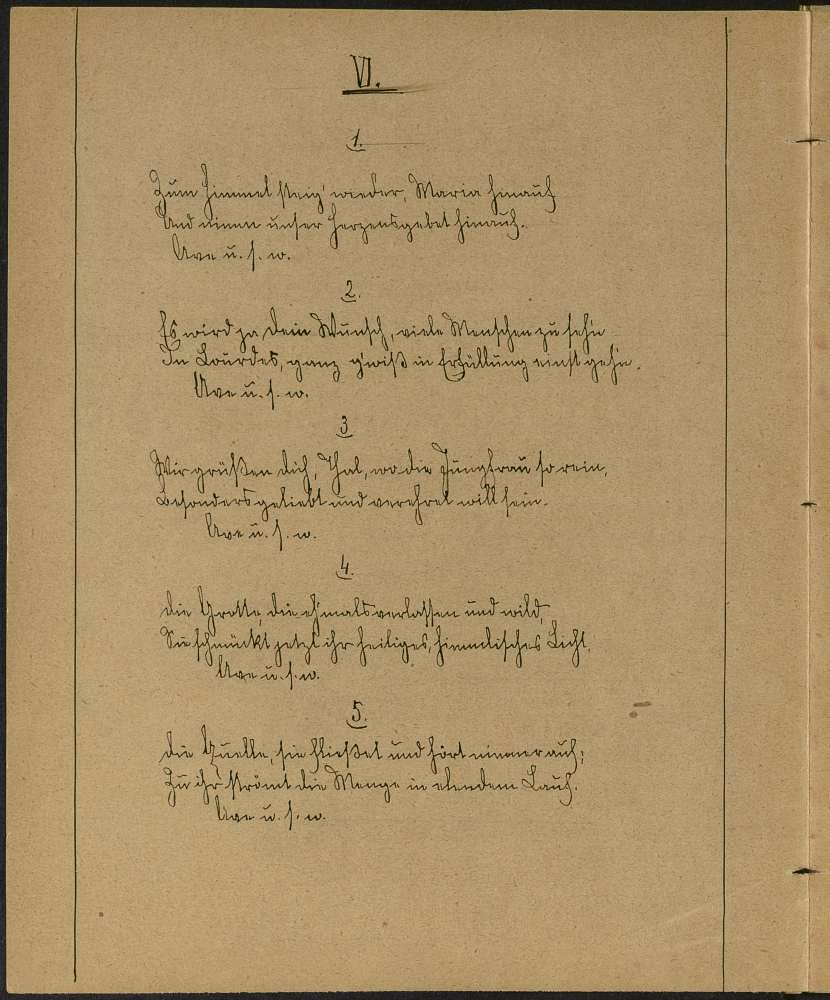 VI.
1.
Zum Himmel steig' wieder, Maria hinauf
Und nimm unser Herzensgebet hinauf.
Ave u. s. w.
2.
Es wird ja dein Wunsch, viele Menschen zu seh'n
In Lourdes, ganz g'wiß in Erfüllung einst geh'n.
Ave u. s. w.
3
Wir grüßen dich, Thal, wo die Jungfrau so rein,
Besonders geliebt und verehret will sein.
Ave u. s. w.
4.
Die Grotte, die eh'mals verlassen und wild,
Sie schmückt jetzt ihr heiliges, himmlisches Licht.
Ave u. s. w.
5.
Die Quelle, sie fließet und hört nimmer auf;
Zu ihr strömt die Menge in elendem Lauf.
Ave u. s. w.